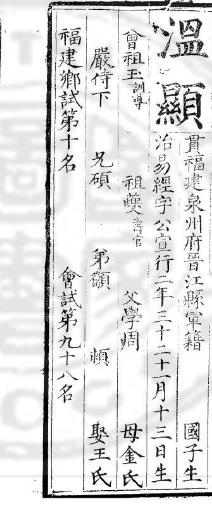 溫顯
貫福建泉州府晉江縣軍籍 國子生
治易經字公宣行二年三十二十一月十三日生
曾祖玉訓導 祖夔 父學 母金氏
嚴侍下 兄碩 弟顒 頔 娶王氏
福建鄉試第十名 會試第九十八名